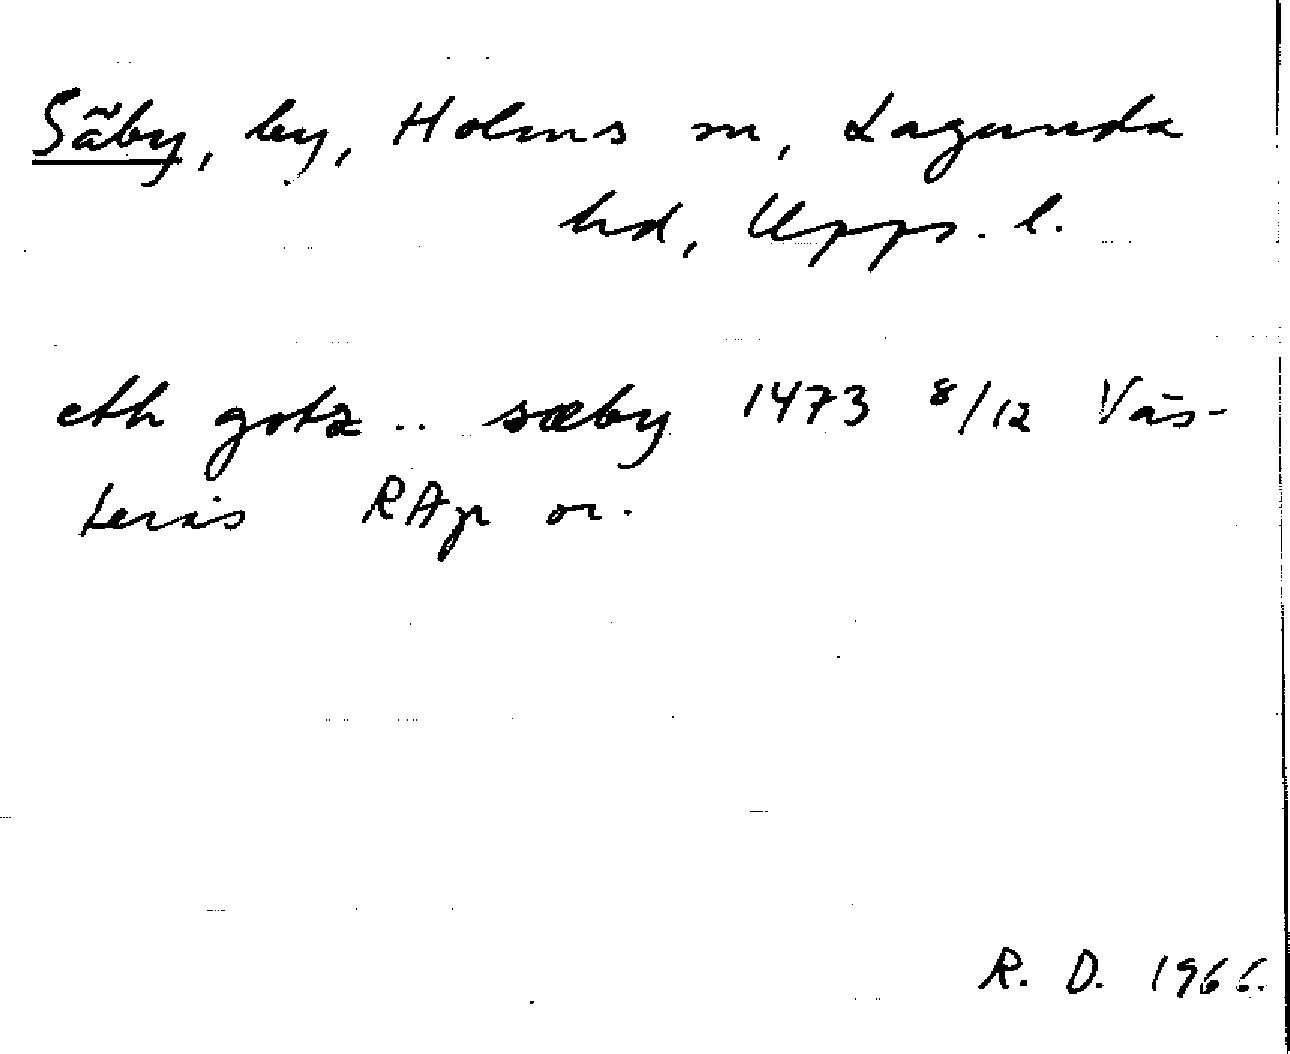 Säby, by, Holms sn, Lagunda
hd, Upps. l.
eth gotz .. sæby 1473 8/12 Väs-
terås RAp or.
R. D. 1966.